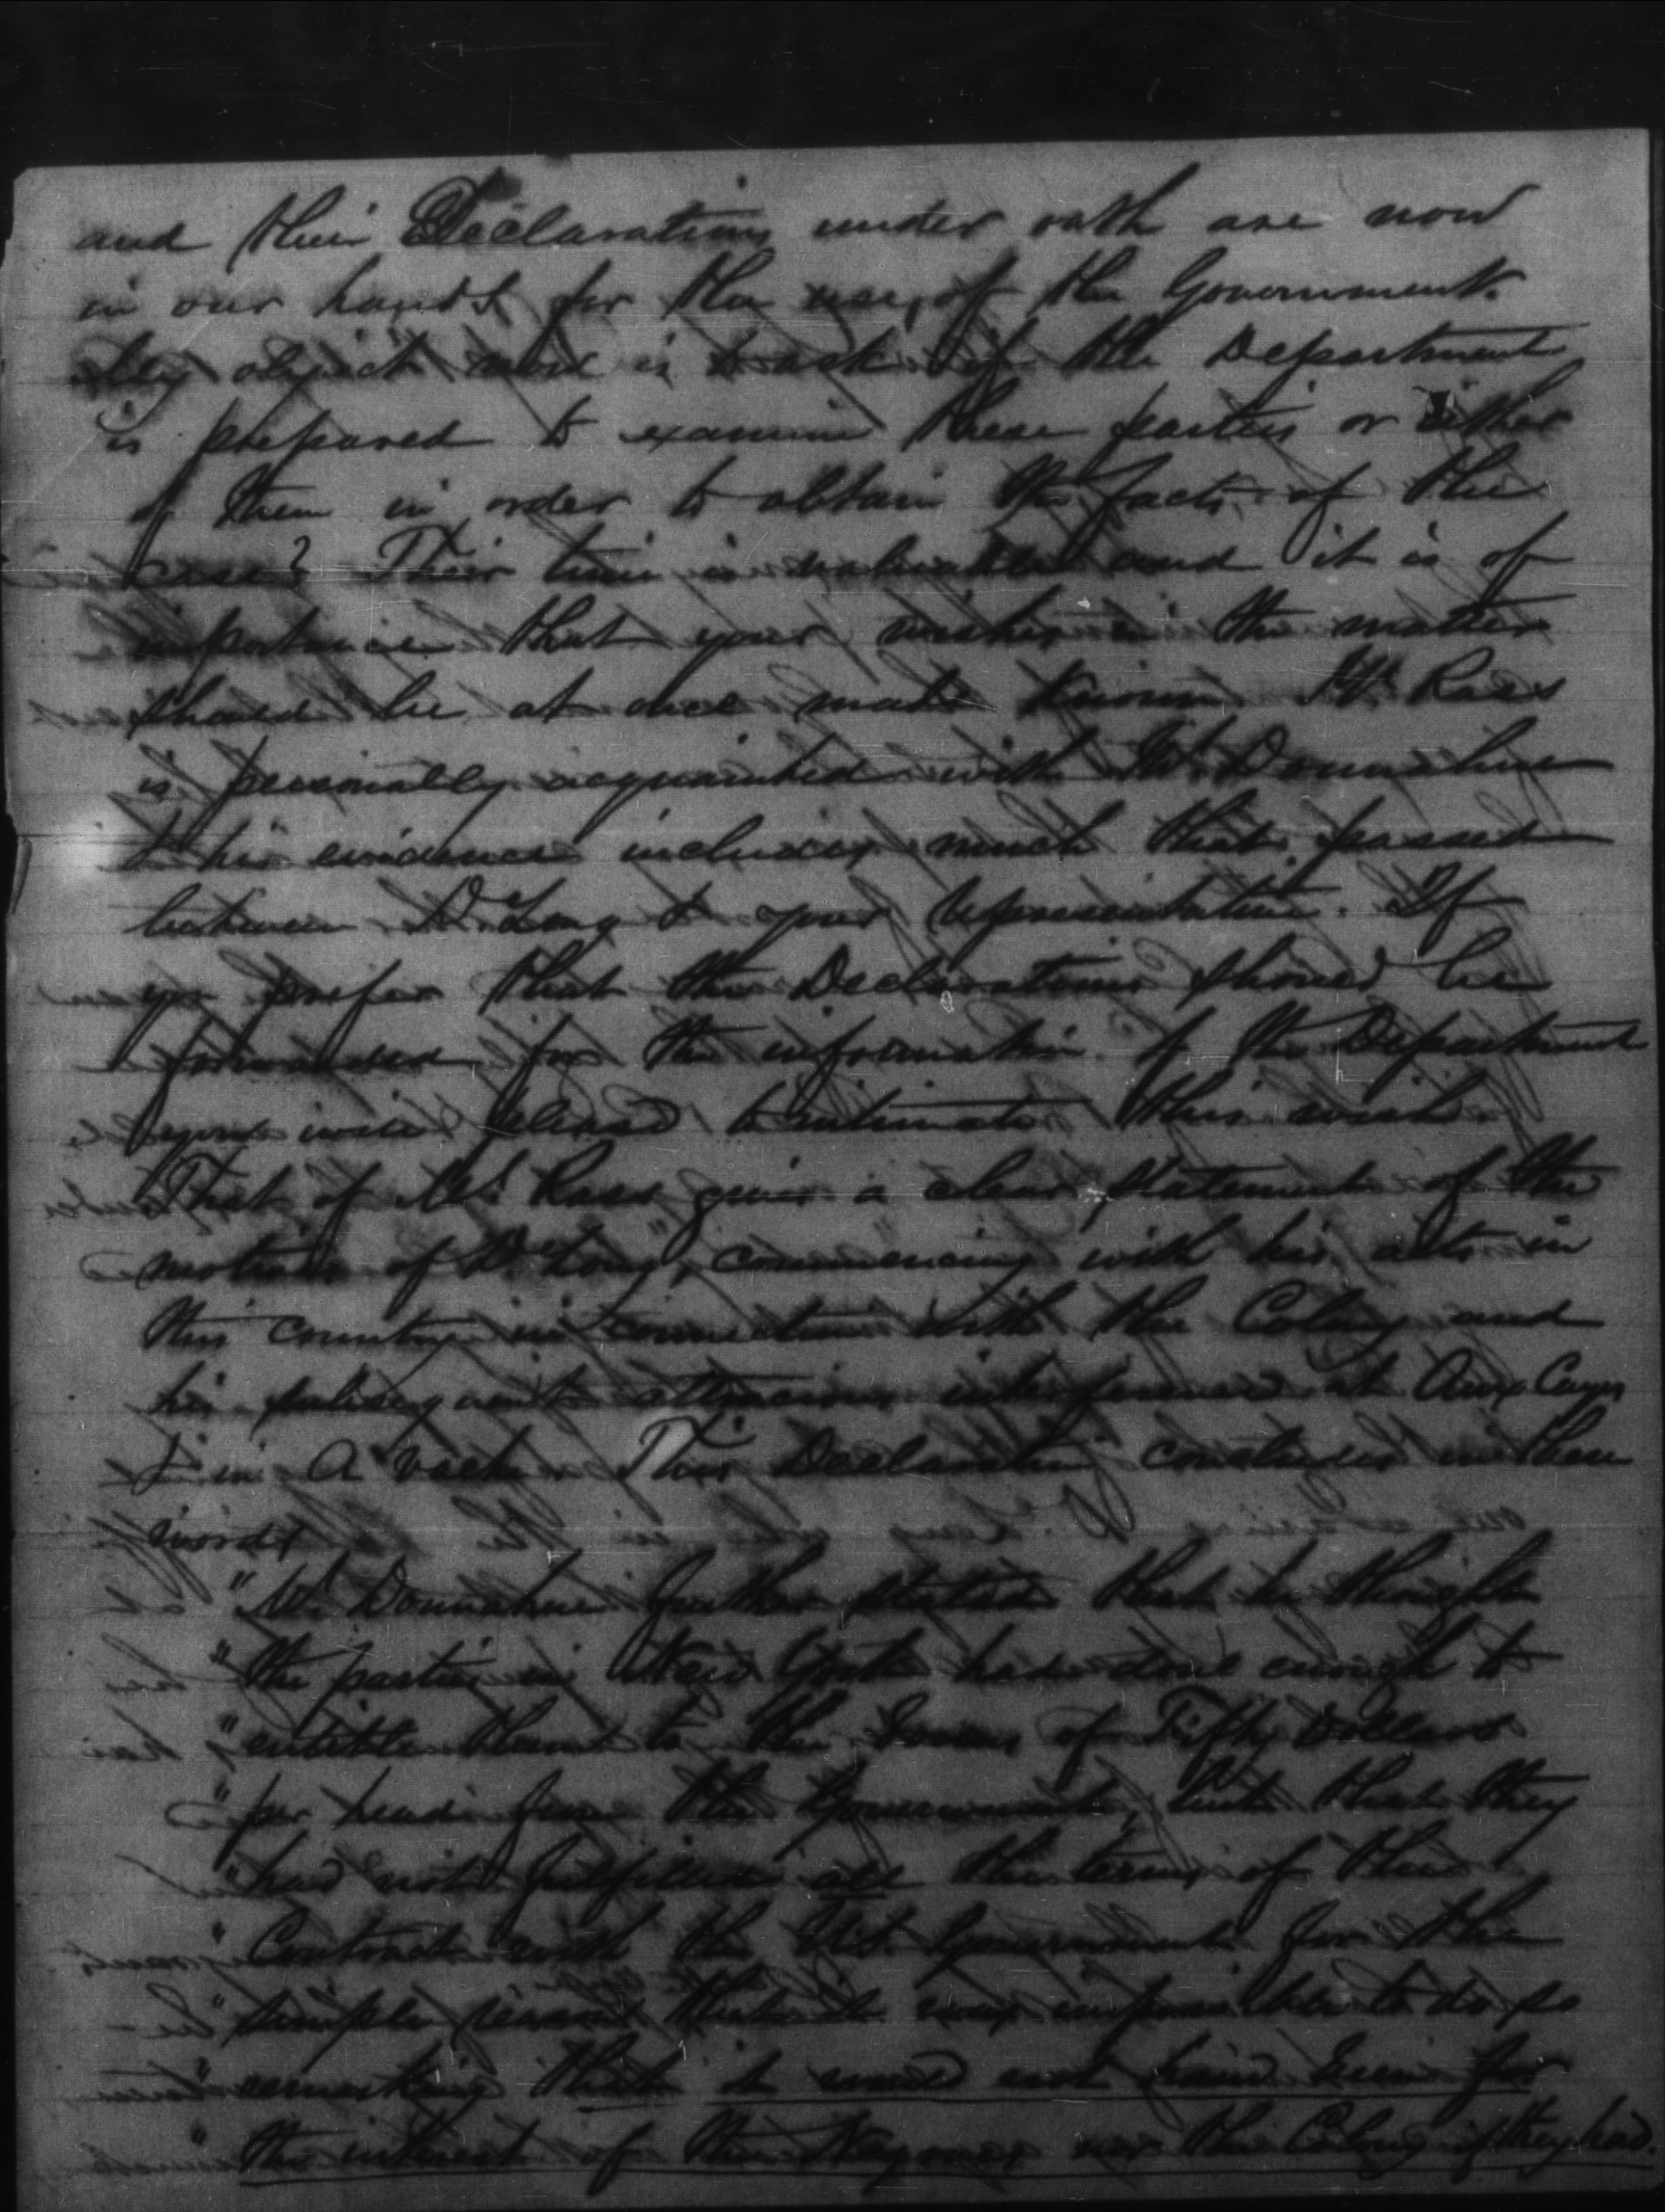 and their Declarations under oath are now
in our hands for the use, of the Government.
My object now is to ask if the Department
is prepared to examine these parties or either
of them in order to obtain the facts of the
case? Their time is valuable and it is of
importance that your wishes in the matter
should be at once made known. Mr. Raas
is personally acquainted with Mr. Donnahue
& his evidence includes much that passed
between De Long & your Representative. If
you prefer that the Declarations should be
forwarded for the information of the Department
you will please to intimate this wish.
That of Mr. Raas gives a clear statement of the
motives of De Long, commencing with his acts in
this country in connection with the Colony and
his subsequent interference at Aux Cayes
& in A'Vache. This Declaration concludes in these
words
"Mr. Donnahue further stated that he thought
"the parties in New York have done enough to
"entitle them to the sum of Fifty Dollars
"per head from the Government, but that they
"had not fulfilled all the terms of their
"Contract with the U.S. Government for the
"simple reason that it was impossible to do so
"remarking that it would not have been for
"the interest of the Negroes nor the Colony if they had.